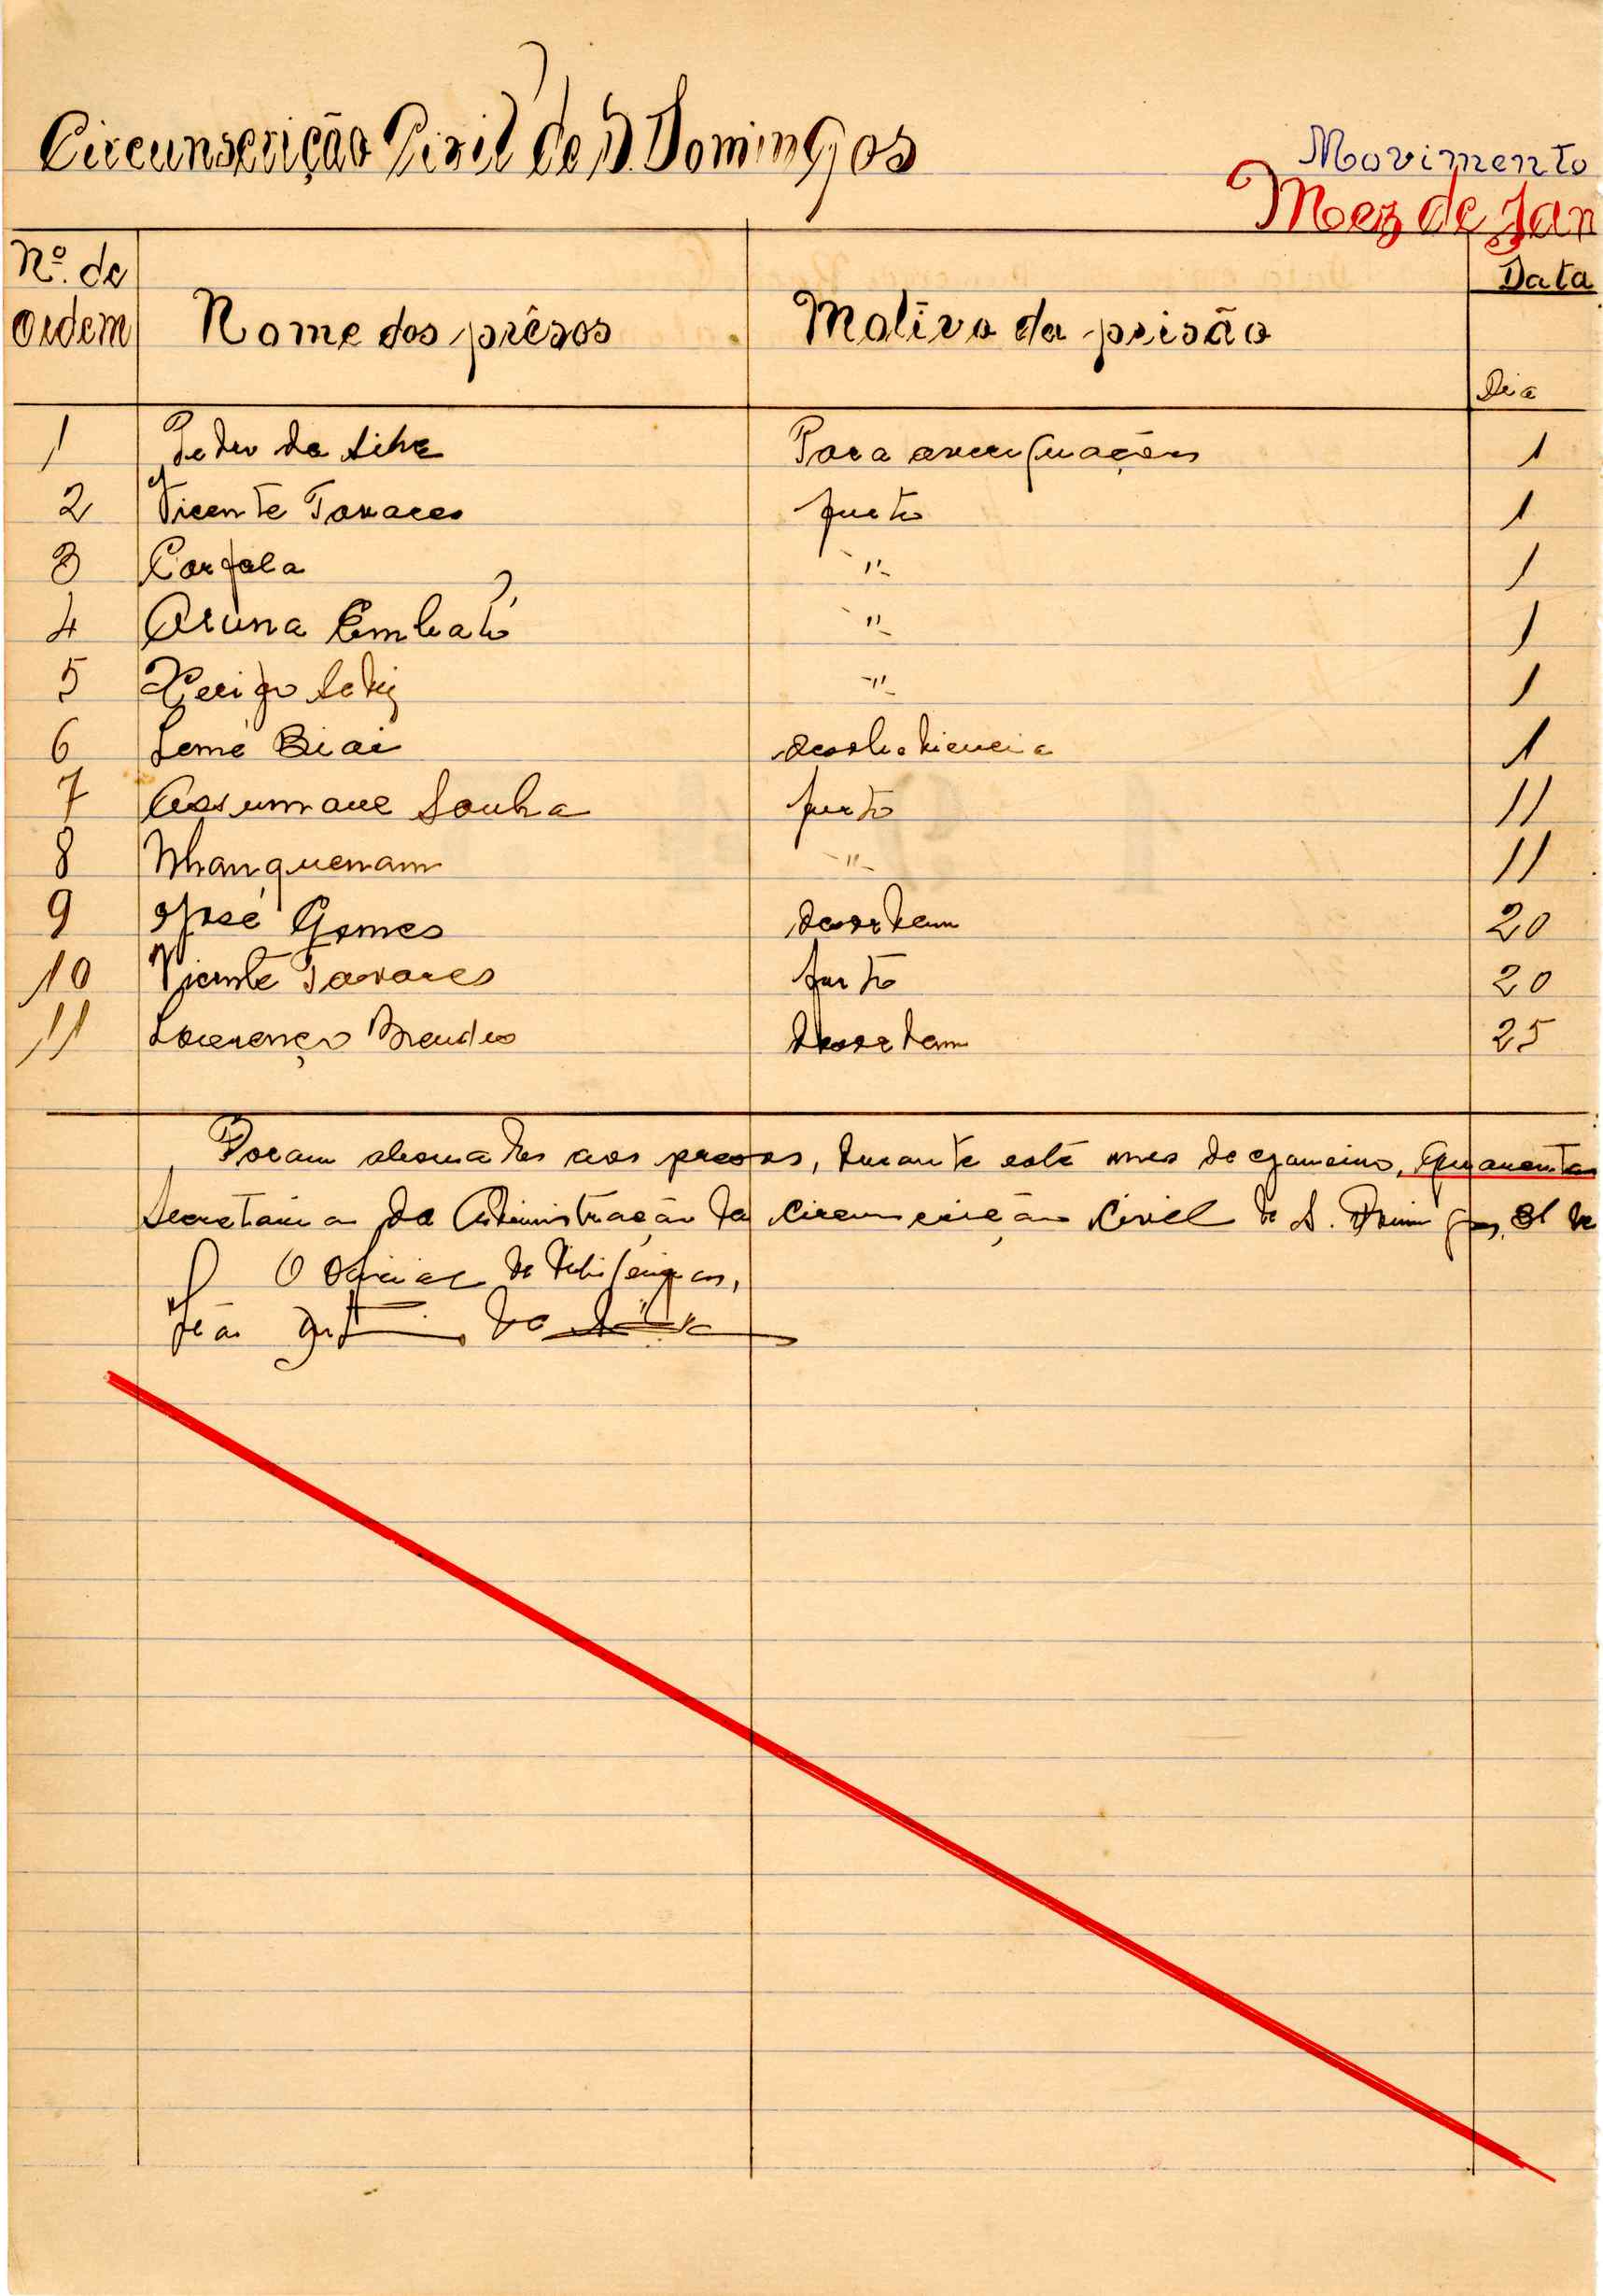 Circunscrição Civil de S. Domingos
Movimento
Mez de Jan
Nº. de ordem
Nome dos prêsos
Motivo da prisão
Data
Dia
1 Pedro da Silva Para averiguações 1
2 Vicente Tavares furto 1
3 Carfala " 1
4 Aruna Embaló " 1
5 " 1
6 Lemé Biai desobediencia 1
7 Assumane Sonha furto 11
8 Nhanquenam " 11
9 José Gomes desordem 20
10 Vicente Tavares furto 20
11 Lourenço Mendes desordem 25
Foram abonados aos presos, durante este mes de janeiro, quarenta
Secretaria da Administração da Circunscrição Civil de S. Domingos, 31 de
O Oficial de diligencias,
João da Silva